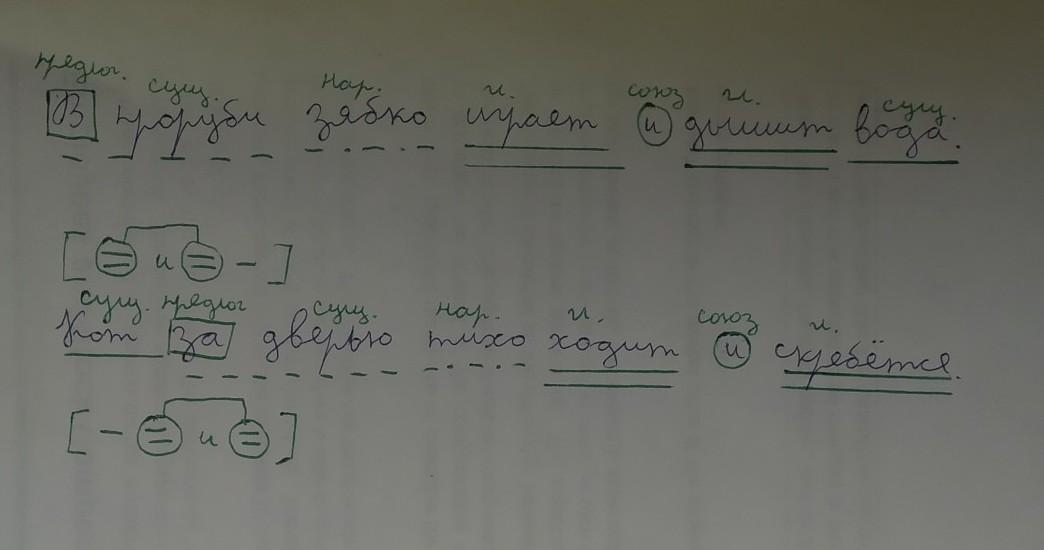 предлог. сущ. нар. г. союз г. сущ.
В проруби зябко играет и дышит вода.
[ и - ]
сущ. предлог сущ. нар. г. союз г.
Кот за дверью тихо ходит и скребётся.
[ - и ]